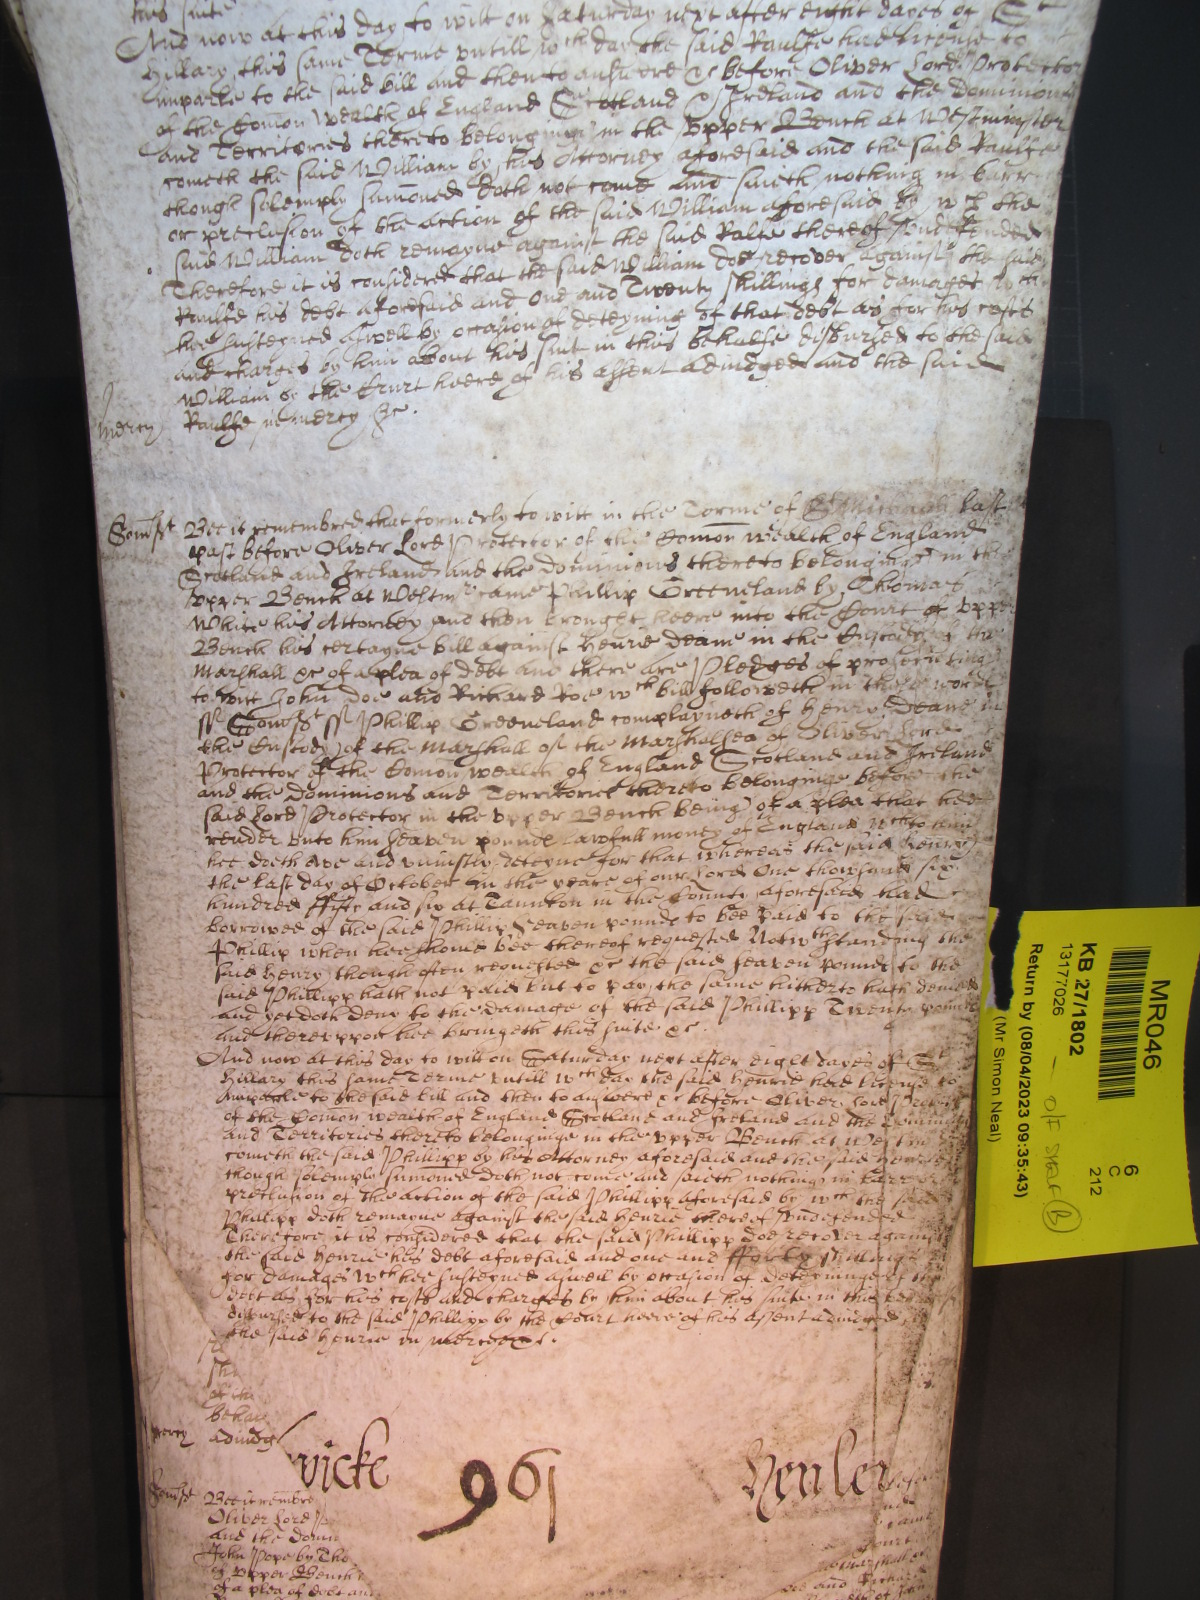 this suite
And now at this day to witt on Saturday next after eight dayes of St
Hillary this same Terme untill wch day the said Raulfe had license to
imparle to the said bill and then to answere &c before Oliver Lord Protector
of the Comon wealth of England Scotland & Ireland and the Dominions
and Territories thereto belonginge in the upper Bench at Westminster
cometh the said William by his Attorney aforesaid and the said Raulfe
though solemply sumoned doth not come and saieth nothing in barre
or preclusion of the action of the said William aforesaid by wch the
said William doth remayne against the said Ralfe thereof undefended
Therefore it is considered that the said William doe recover against the said
Raulfe his debt aforesaid and One and Twenty shillings for damages wch
hee susteyned aswell by occasion of deteyning of that debt as for his costs
and charges by him about his suit in this behalfe disbursed to the said
William by the Court heere of his assent adiudged and the said
Mercy Raulfe in mercy &c.
Somst Bee it remembred that formerly to witt in the Terme of St Michaell last
past before Oliver Lord Protector of the Comon wealth of England
Scotland and Ireland and the dominions thereto belonginge in the
upper Bench at Westmr came Phillip Greeneland by Thomas
White his Attorney and then brought heere into the Court of upper
Bench his certayne bill against Henrie Deane in the Custody of the
Marshall &c of a plea of debt and there are Pledges of prosecuting
to witt John Doe and Richard Roe wch bill followeth in these words
ss Somst ss Phillip Greeneland complayneth of Henry Deane in
the Custody of the Marshall of the Marshalsea of Oliver Lord
Protector of the Comon wealth of England Scotland and Ireland
and the dominions and Territories thereto belonginge before the
said Lord Protector in the upper Bench being of a plea that hee
render unto him seaven pounds lawfull money of England wch to him
hee doth owe and uniustly deteyne for that whereas the said Henry
the last day of October in the yeare of our Lord One thowsand six
hundred fifty and six at Taunton in the County aforesaid had
borrowed of the said Phillip Seaven pounds to bee paid to the said
Phillip when hee should bee thereof requested Notwthstanding the
said Henry though often requested &c the said seaven pounds to the
said Phillipp hath not paid but to pay the same hitherto hath denied
and yet doth deny to the damage of the said Phillipp Twenty pounds
and thereuppon hee bringeth this suite &c.
And now at this day to witt on Saturday next after eight dayes of St
Hillary this same Terme untill wch day the said Henrie had license to
imparle to the said bill and then to answere &c before Oliver Lord
of the Comon wealth of England Scotland and Ireland and the
and Territories thereto belonginge in the upper Bench at
cometh the said Phillipp by his Attorney aforesaid and the said
though solemply sumoned doth not come and saieth nothing in barre or
preclusion of the action of the said Phillipp aforesaid by wch the said
Phillipp doth remayne against the said Henrie thereof undefended
Therefore it is considered that the said Phillipp doe recover against
the said Henrie his debt aforesaid and one and fforty shillings
for damages wch hee susteyned aswell by occasion of deteyninge of that
debt as for his costs and charges by him about his suite in this
disbursed to the said Phillipp by the Court heere of his assent adiudged
the said Henrie in mercy &c.
of the
behal
mercy adiudg
wicke 961 Henley
Somst Bee it remembre
Oliver Lord
and the domin
John Pope by Tho
of upper Bench
of a plea of debt and
MR046
6
C
212
KB 27/1802
13177026
o/f shelf B
Return by (08/04/2023 09:35:43)
(Mr Simon Neal)